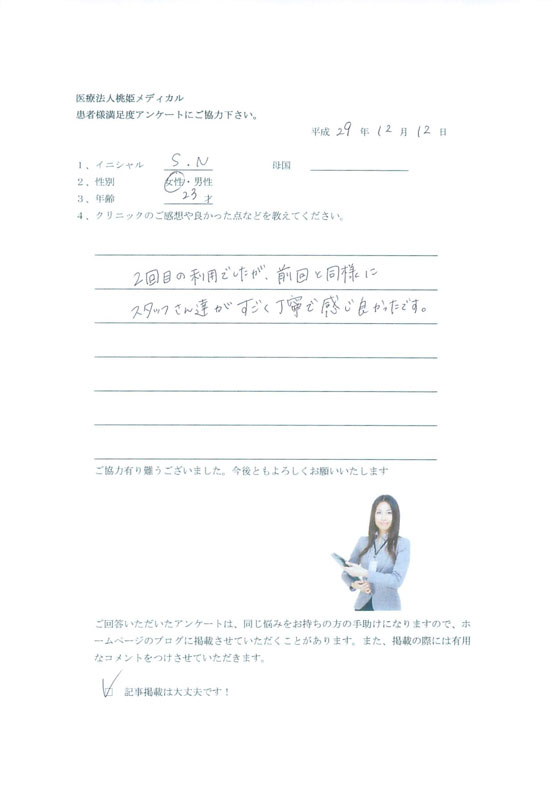 医療法人桃姫メディカル
患者様満足度アンケートにご協力下さい。
平成 29 年 12 月 12 日
1、イニシャル S.N 母国
2、性別 女性・男性
3、年齢 23 才
4、クリニックのご感想や良かった点などを教えてください。
2回目の利用でしたが、前回と同様に
スタッフさん達がすごく丁寧で感じ良かったです。
ご協力有り難うございました。今後ともよろしくお願いいたします
ご回答いただいたアンケートは、同じ悩みをお持ちの方の手助けになりますので、ホ
ームページのブログに掲載させていただくことがあります。また、掲載の際には有用
なコメントをつけさせていただきます。
□ 記事掲載は大丈夫です！